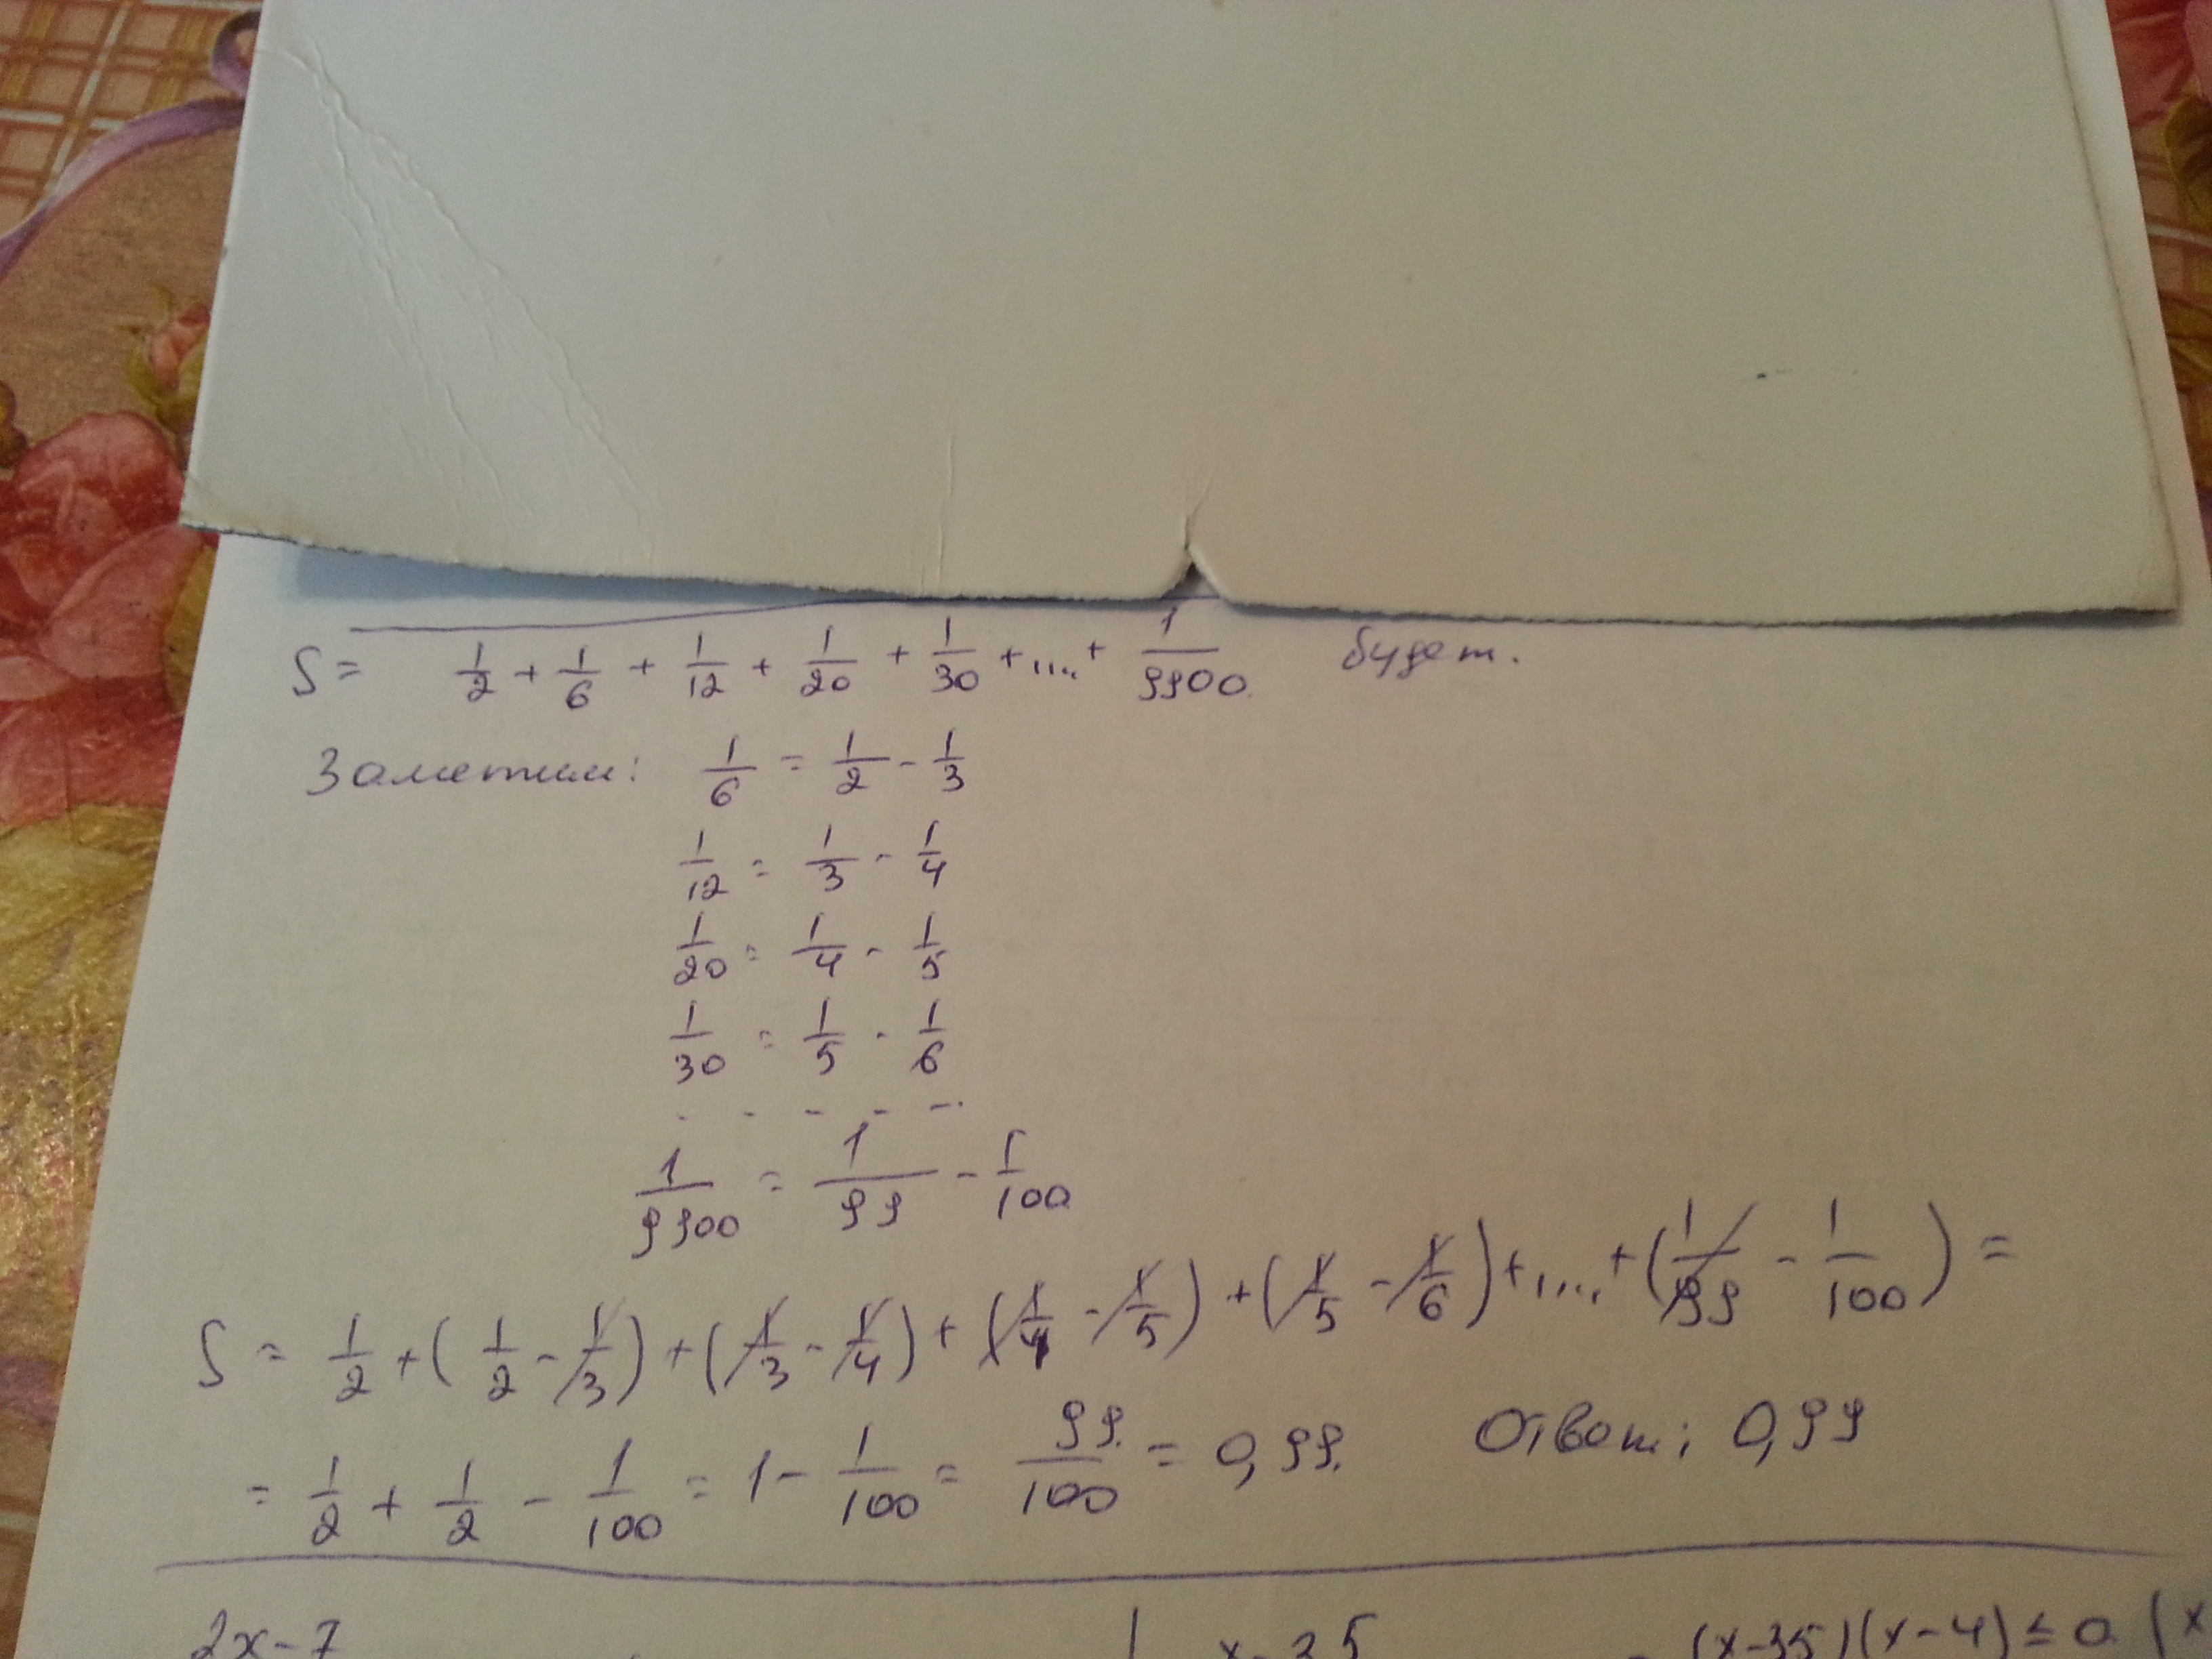 S = 1/2 + 1/6 + 1/12 + 1/20 + 1/30 + .... + 1/9900 будет.
Заметим: 1/6 = 1/2 - 1/3
1/12 = 1/3 - 1/4
1/20 = 1/4 - 1/5
1/30 = 1/5 - 1/6
- - - - -
1/9900 = 1/99 - 1/100
S = 1/2 + (1/2 - 1/3) + (1/3 - 1/4) + (1/4 - 1/5) + (1/5 - 1/6) + .... + (1/99 - 1/100) =
= 1/2 + 1/2 - 1/100 = 1 - 1/100 = 99/100 = 0,99. Ответ: 0,99
2x - 7 x - 35 (x-35)(x-4) ≤ 0 (x